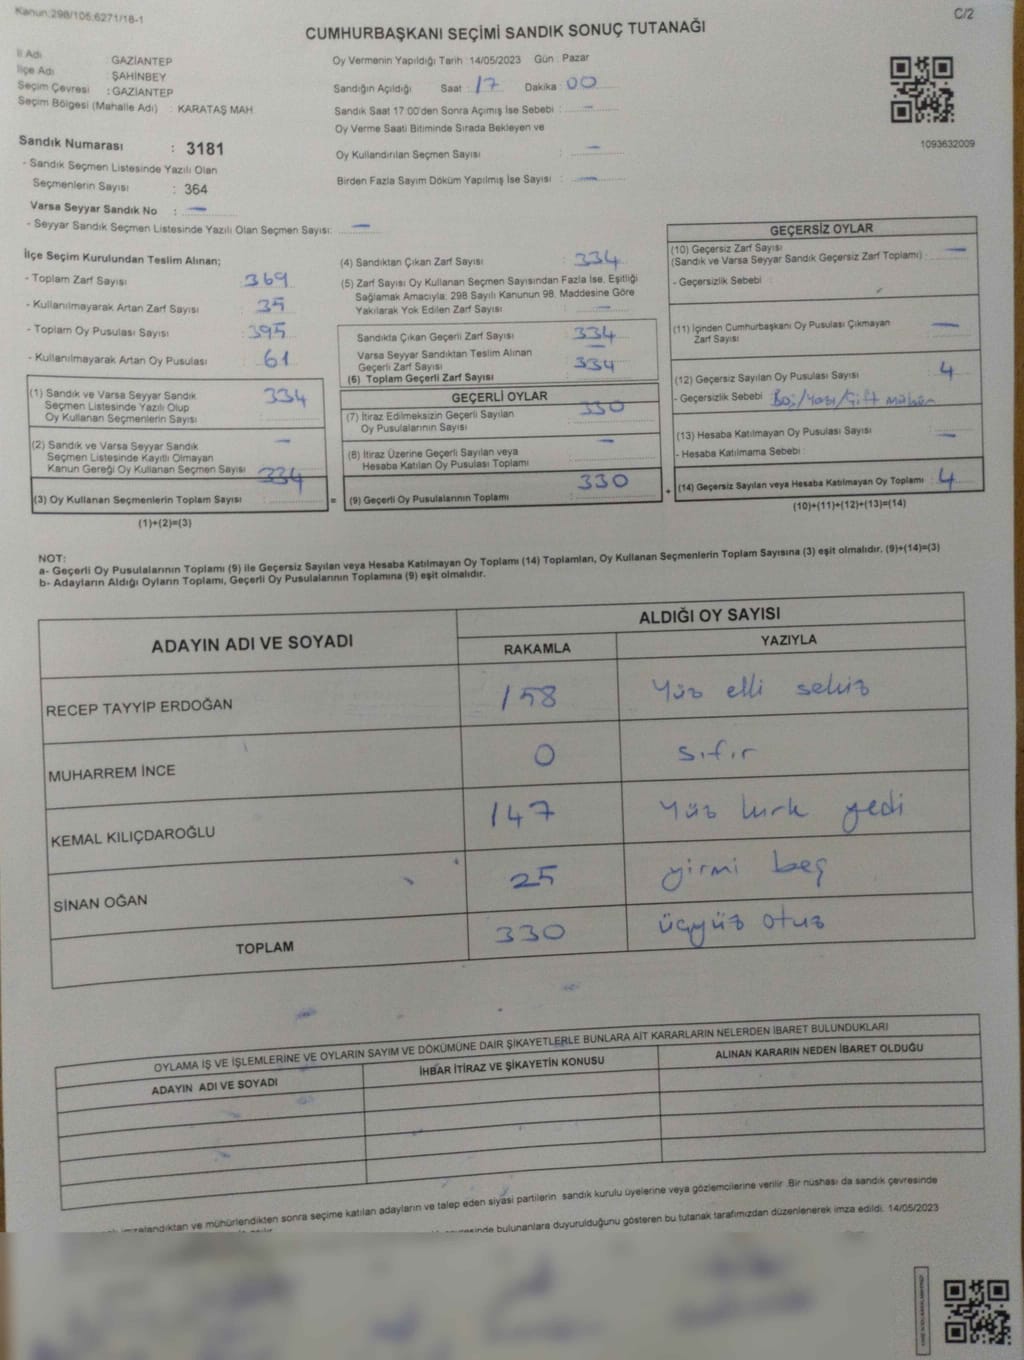 Kanun:298/105;6271/18-1
C/2
CUMHURBAŞKANI SEÇİMİ SANDIK SONUÇ TUTANAĞI
İl Adı : GAZİANTEP
İlçe Adı : ŞAHİNBEY
Seçim Çevresi : GAZİANTEP
Seçim Bölgesi (Mahalle Adı) : KARATAŞ MAH.
Oy Vermenin Yapıldığı Tarih :14/05/2023 Gün : Pazar
Sandığın Açıldığı Saat : 17 Dakika : 00
Sandık Saat 17:00'den Sonra Açımış İse Sebebi : —
Oy Verme Saati Bitiminde Sırada Bekleyen ve
Oy Kullandırılan Seçmen Sayısı : —
Birden Fazla Sayım Döküm Yapılmış İse Sayısı : —
1093632009
Sandık Numarası : 3181
- Sandık Seçmen Listesinde Yazılı Olan
Seçmenlerin Sayısı : 364
Varsa Seyyar Sandık No : —
- Seyyar Sandık Seçmen Listesinde Yazılı Olan Seçmen Sayısı: —
İlçe Seçim Kurulundan Teslim Alınan;
- Toplam Zarf Sayısı : 369
- Kullanılmayarak Artan Zarf Sayısı : 35
- Toplam Oy Pusulası Sayısı : 395
- Kullanılmayarak Artan Oy Pusulası : 61
(1) Sandık ve Varsa Seyyar Sandık
Seçmen Listesinde Yazılı Olup
Oy Kullanan Seçmenlerin Sayısı : 334
(2) Sandık ve Varsa Seyyar Sandık
Seçmen Listesinde Kayıtlı Olmayan
Kanun Gereği Oy Kullanan Seçmen Sayısı : —
(3) Oy Kullanan Seçmenlerin Toplam Sayısı : 334
(1)+(2)=(3)
(4) Sandıktan Çıkan Zarf Sayısı : 334
(5) Zarf Sayısı Oy Kullanan Seçmen Sayısından Fazla İse, Eşitliği
Sağlamak Amacıyla; 298 Sayılı Kanunun 98. Maddesine Göre
Yakılarak Yok Edilen Zarf Sayısı : —
Sandıkta Çıkan Geçerli Zarf Sayısı : 334
Varsa Seyyar Sandıktan Teslim Alınan
Geçerli Zarf Sayısı : —
(6) Toplam Geçerli Zarf Sayısı : 334
GEÇERLİ OYLAR
(7) İtiraz Edilmeksizin Geçerli Sayılan
Oy Pusulalarının Sayısı : 330
(8) İtiraz Üzerine Geçerli Sayılan veya
Hesaba Katılan Oy Pusulası Toplamı : —
= (9) Geçerli Oy Pusulalarının Toplamı : 330
GEÇERSİZ OYLAR
(10) Geçersiz Zarf Sayısı
(Sandık ve Varsa Seyyar Sandık Geçersiz Zarf Toplamı) : —
- Geçersizlik Sebebi :
(11) İçinden Cumhurbaşkanı Oy Pusulası Çıkmayan
Zarf Sayısı : —
(12) Geçersiz Sayılan Oy Pusulası Sayısı : 4
- Geçersizlik Sebebi : Boş/Yazı/Çift mühür
(13) Hesaba Katılmayan Oy Pusulası Sayısı : —
- Hesaba Katılmama Sebebi :
+ (14) Geçersiz Sayılan veya Hesaba Katılmayan Oy Toplamı : 4
(10)+(11)+(12)+(13)=(14)
NOT:
a- Geçerli Oy Pusulalarının Toplamı (9) ile Geçersiz Sayılan veya Hesaba Katılmayan Oy Toplamı (14) Toplamları, Oy Kullanan Seçmenlerin Toplam Sayısına (3) eşit olmalıdır. (9)+(14)=(3)
b- Adayların Aldığı Oyların Toplamı, Geçerli Oy Pusulalarının Toplamına (9) eşit olmalıdır.
ADAYIN ADI VE SOYADI
ALDIĞI OY SAYISI
RAKAMLA YAZIYLA
RECEP TAYYİP ERDOĞAN 158 Yüz elli sekiz
MUHARREM İNCE 0 sıfır
KEMAL KILIÇDAROĞLU 147 Yüz kırk yedi
SİNAN OĞAN 25 yirmi beş
TOPLAM 330 üçyüz otuz
OYLAMA İŞ VE İŞLEMLERİNE VE OYLARIN SAYIM VE DÖKÜMÜNE DAİR ŞİKAYETLERLE BUNLARA AİT KARARLARIN NELERDEN İBARET BULUNDUKLARI
ADAYIN ADI VE SOYADI İHBAR İTİRAZ VE ŞİKAYETİN KONUSU ALINAN KARARIN NEDEN İBARET OLDUĞU
imzalandıktan ve mühürlendikten sonra seçime katılan adayların ve talep eden siyasi partilerin sandık kurulu üyelerine veya gözlemcilerine verilir. Bir nüshası da sandık çevresinde
bulunanlara duyurulduğunu gösteren bu tutanak tarafımızdan düzenlenerek imza edildi. 14/05/2023